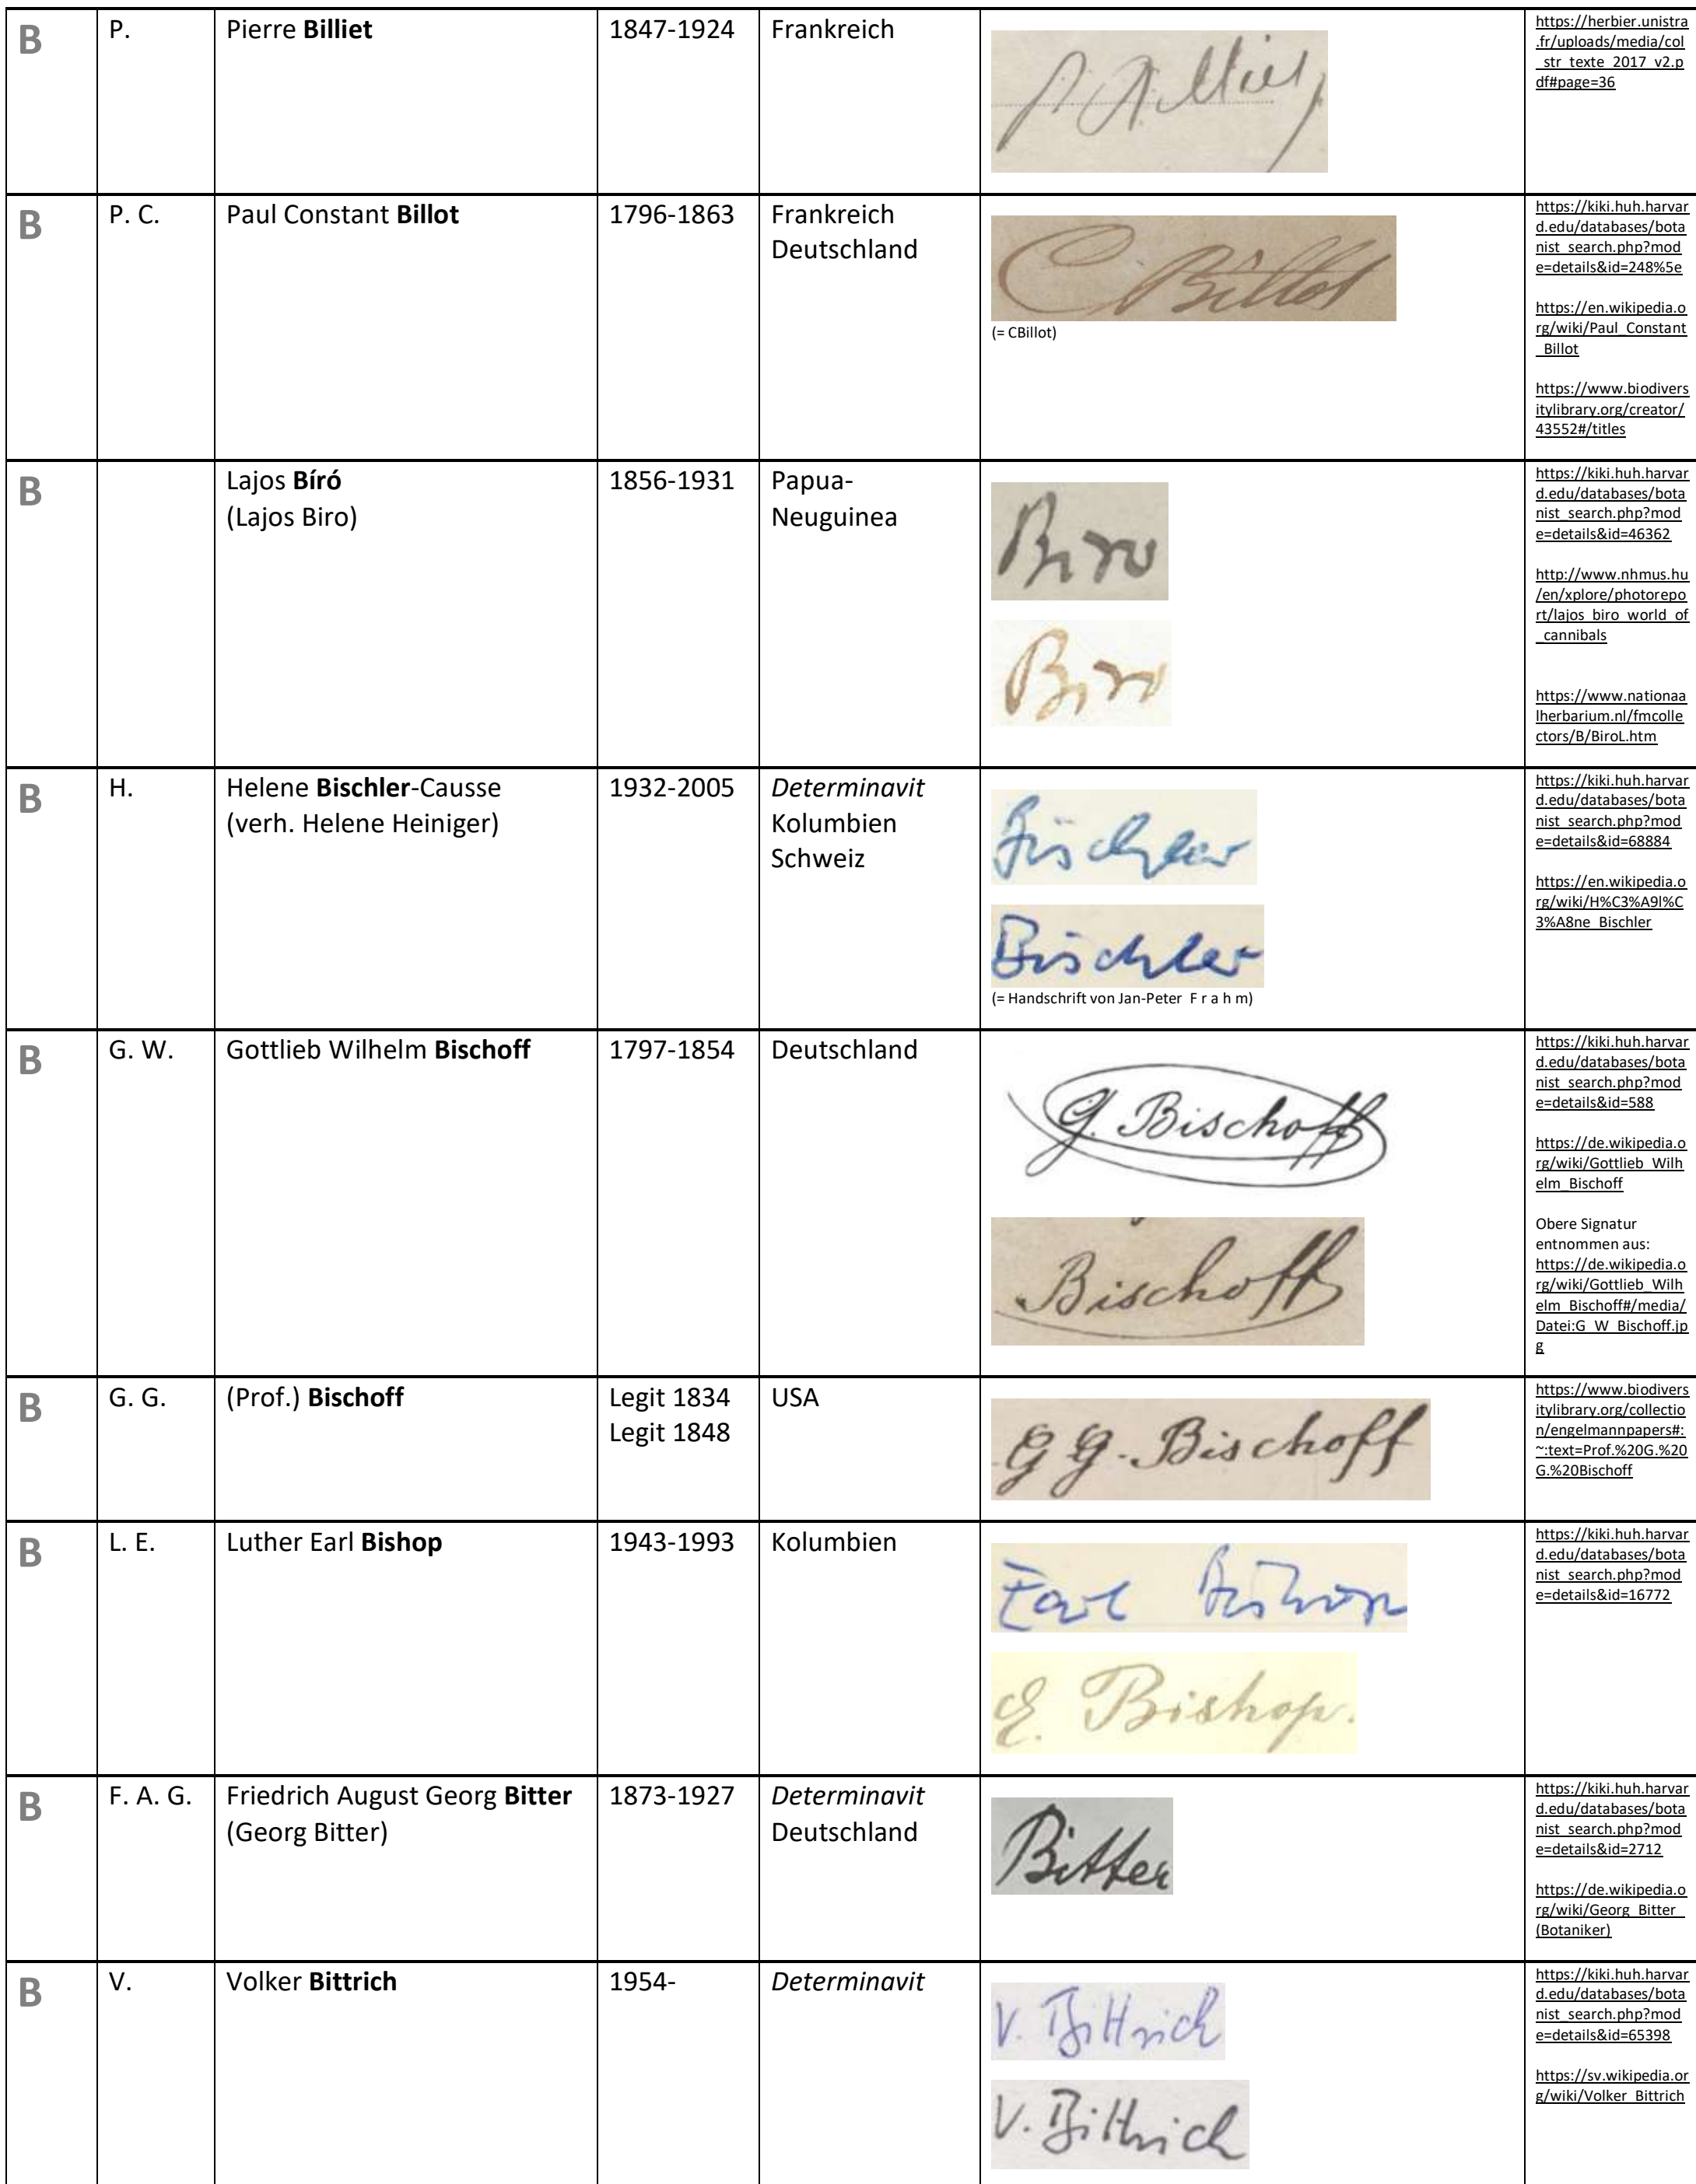 B P. Pierre Billiet 1847-1924 Frankreich
https://herbier.unistra
.fr/uploads/media/col
_str_texte_2017_v2.p
df#page=36
B P. C. Paul Constant Billot 1796-1863 Frankreich
Deutschland
C Billot
(= CBillot)
https://kiki.huh.harvar
d.edu/databases/bota
nist_search.php?mod
e=details&id=248%5e
https://en.wikipedia.o
rg/wiki/Paul_Constant
_Billot
https://www.biodivers
itylibrary.org/creator/
43552#/titles
B Lajos Bíró 1856-1931 Papua-
(Lajos Biro) Neuguinea
Biro
Biro
https://kiki.huh.harvar
d.edu/databases/bota
nist_search.php?mod
e=details&id=46362
http://www.nhmus.hu
/en/xplore/photorepo
rt/lajos_biro_world_of
_cannibals
https://www.nationaa
lherbarium.nl/fmcolle
ctors/B/BiroL.htm
B H. Helene Bischler-Causse 1932-2005 Determinavit
(verh. Helene Heiniger) Kolumbien
Schweiz
Bischler
Bischler
(= Handschrift von Jan-Peter F r a h m)
https://kiki.huh.harvar
d.edu/databases/bota
nist_search.php?mod
e=details&id=68884
https://en.wikipedia.o
rg/wiki/H%C3%A9l%C
3%A8ne_Bischler
B G. W. Gottlieb Wilhelm Bischoff 1797-1854 Deutschland
G. Bischoff
Bischoff
https://kiki.huh.harvar
d.edu/databases/bota
nist_search.php?mod
e=details&id=588
https://de.wikipedia.o
rg/wiki/Gottlieb_Wilh
elm_Bischoff
Obere Signatur
entnommen aus:
https://de.wikipedia.o
rg/wiki/Gottlieb_Wilh
elm_Bischoff#/media/
Datei:G_W_Bischoff.jp
g
B G. G. (Prof.) Bischoff Legit 1834 USA
Legit 1848
G G. Bischoff
https://www.biodivers
itylibrary.org/collectio
n/engelmannpapers#:
~:text=Prof.%20G.%20
G.%20Bischoff
B L. E. Luther Earl Bishop 1943-1993 Kolumbien
Earl Bishop
E. Bishop.
https://kiki.huh.harvar
d.edu/databases/bota
nist_search.php?mod
e=details&id=16772
B F. A. G. Friedrich August Georg Bitter 1873-1927 Determinavit
(Georg Bitter) Deutschland
Bitter
https://kiki.huh.harvar
d.edu/databases/bota
nist_search.php?mod
e=details&id=2712
https://de.wikipedia.o
rg/wiki/Georg_Bitter_
(Botaniker)
B V. Volker Bittrich 1954- Determinavit
V. Bittrich
V. Bittrich
https://kiki.huh.harvar
d.edu/databases/bota
nist_search.php?mod
e=details&id=65398
https://sv.wikipedia.or
g/wiki/Volker_Bittrich